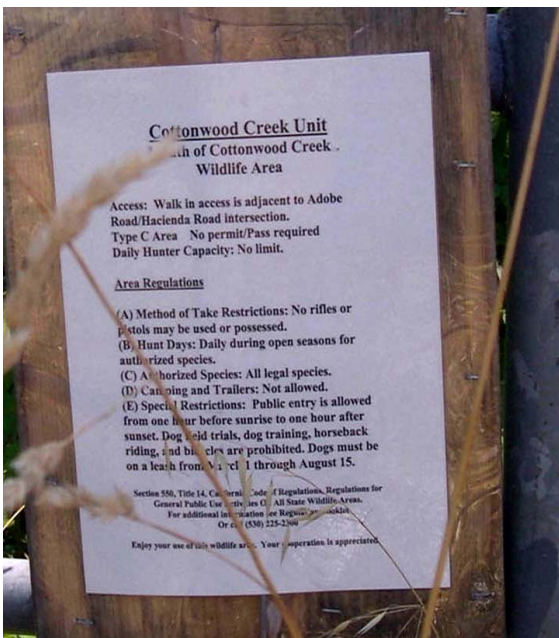 Cottonwood Creek Unit
Mouth of Cottonwood Creek
Wildlife Area
Access: Walk in access is adjacent to Adobe
Road/Hacienda Road intersection.
Type C Area No permit/Pass required
Daily Hunter Capacity: No limit.
Area Regulations
(A) Method of Take Restrictions: No rifles or
pistols may be used or possessed.
(B) Hunt Days: Daily during open seasons for
authorized species.
(C) Authorized Species: All legal species.
(D) Camping and Trailers: Not allowed.
(E) Special Restrictions: Public entry is allowed
from one hour before sunrise to one hour after
sunset. Dog field trials, dog training, horseback
riding, and bicycles are prohibited. Dogs must be
on a leash from March 1 through August 15.
Section 550, Title 14, California Code of Regulations, Regulations for
General Public Use Activities On All State Wildlife Areas.
For additional information see Regulation
Or call (530) 225-2300
Enjoy your use of this wildlife area. Your cooperation is appreciated.